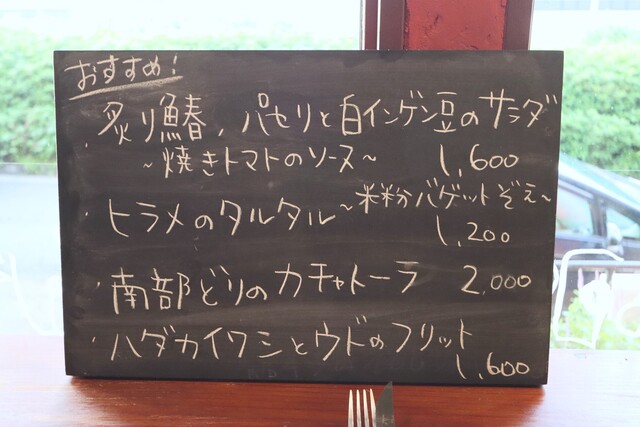 おすすめ!
・炙り鰆、パセリと白インゲン豆のサラダ
~焼きトマトのソース~ 1,600
・ヒラメのタルタル~米粉バゲットぞえ~
1,200
・南部どりのカチャトーラ 2,000
・ハダカイワシとウドのフリット
1,600